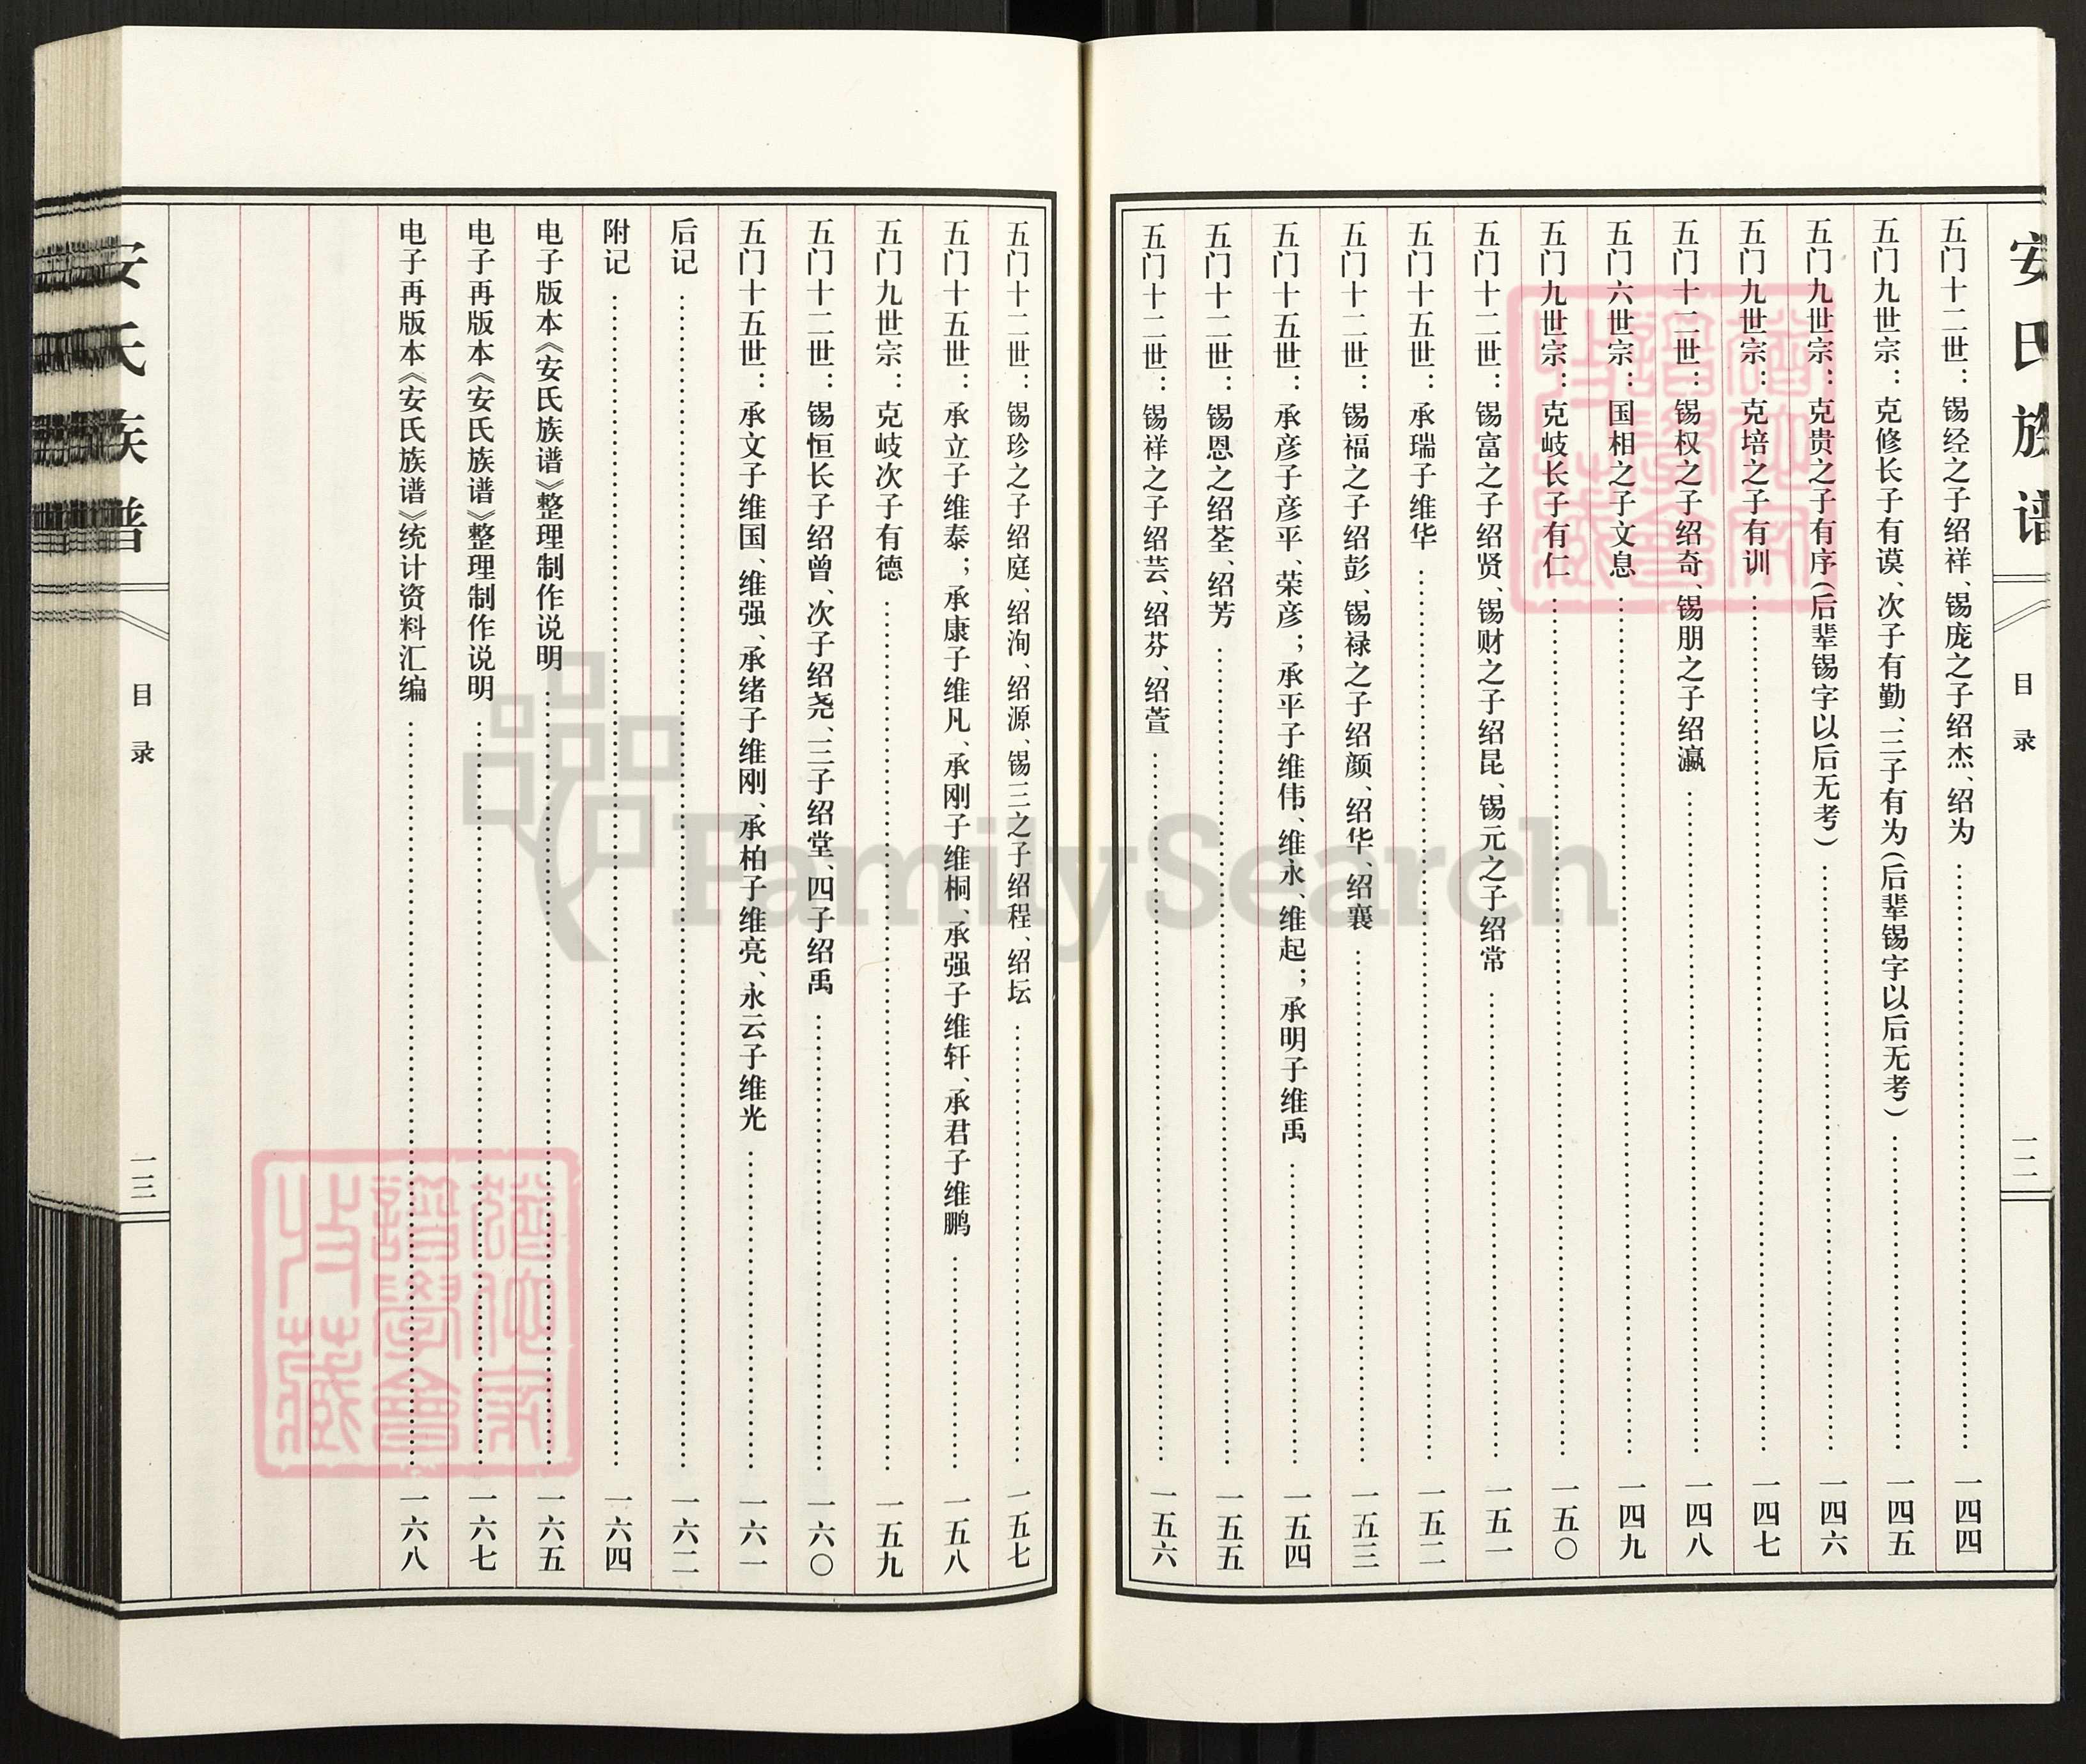 安氏族谱
目录
一二
五门十二世：锡经之子绍祥、锡庞之子绍杰、绍为……一四四
五门九世宗：克修长子有谟、次子有勤、三子有为(后辈锡字以后无考)……一四五
五门九世宗：克贵之子有序(后辈锡字以后无考)……一四六
五门九世宗：克培之子有训……一四七
五门十二世：锡权之子绍奇、锡朋之子绍瀛……一四八
五门六世宗：国相之子文息……一四九
五门九世宗：克岐长子有仁……一五〇
五门十二世：锡富之子绍贤、锡财之子绍昆、锡元之子绍常……一五一
五门十五世：承瑞子维华……一五二
五门十二世：锡福之子绍彭、锡禄之子绍颜、绍华、绍襄……一五三
五门十五世：承彦子彦平、荣彦；承平子维伟、维永、维起；承明子维禹……一五四
五门十二世：锡恩之绍荃、绍芳……一五五
五门十二世：锡祥之子绍芸、绍芬、绍萱……一五六
五门十二世：锡珍之子绍庭、绍洵、绍源、锡三之子绍程、绍坛……一五七
五门十五世：承立子维泰；承康子维凡、承刚子维桐、承强子维轩、承君子维鹏……一五八
五门九世宗：克岐次子有德……一五九
五门十二世：锡恒长子绍曾、次子绍尧、三子绍堂、四子绍禹……一六〇
五门十五世：承文子维国、维强、承绪子维刚、承柏子维亮、永云子维光……一六一
后记……一六二
附记……一六四
电子版本《安氏族谱》整理制作说明……一六五
电子再版本《安氏族谱》整理制作说明……一六七
电子再版本《安氏族谱》统计资料汇编……一六八
安氏族谱
目录
一三
FamilySearch